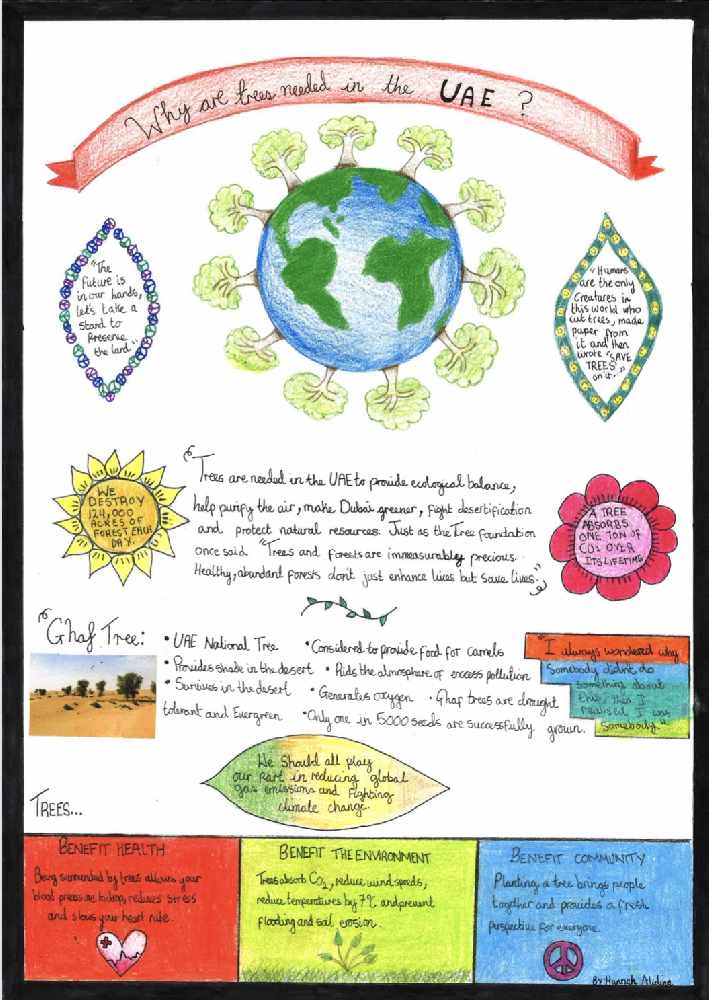 Why are trees needed in the UAE ?
"The
future is
in our hands,
let's take a
stand to
preserve
the land"
"Humans
are the only
creatures in
this world who
cut trees, made
paper from
it and then
wrote "SAVE
TREES
on it."
WE
DESTROY
124,000
ACRES OF
FOREST EACH
DAY.
Trees are needed in the UAE to provide ecological balance,
help purify the air, make Dubai greener, fight desertification
and protect natural resources. Just as the Tree foundation
once said "Trees and forests are immeasurably precious.
Healthy, abundant forests don't just enhance lives but save lives."
A TREE
ABSORBS
ONE TON OF
CO2 OVER
ITS LIFETIME
Ghaf Tree:
• UAE National Tree
• Provides shade in the desert
• Survives in the desert
• Considered to provide food for camels
• Rids the atmosphere of excess pollution
• Generates oxygen • Ghaf trees are drought
tolerant and Evergreen • Only one in 5000 seeds are successfully grown.
"I always wondered why
Somebody didn't do
something about
this, then I
realised I was
Somebody"
We should all play
our part in reducing global
gas emissions and fighting
climate change.
TREES...
BENEFIT HEALTH
Being surrounded by trees allows your
blood pressure to drop, reduces stress
and slows your heart rate.
BENEFIT THE ENVIRONMENT
Trees absorb CO2, reduce wind speeds,
reduce temperatures by 7% and prevent
flooding and soil erosion.
BENEFIT COMMUNITY
Planting a tree brings people
together and provides a fresh
perspective for everyone.
By Hannah